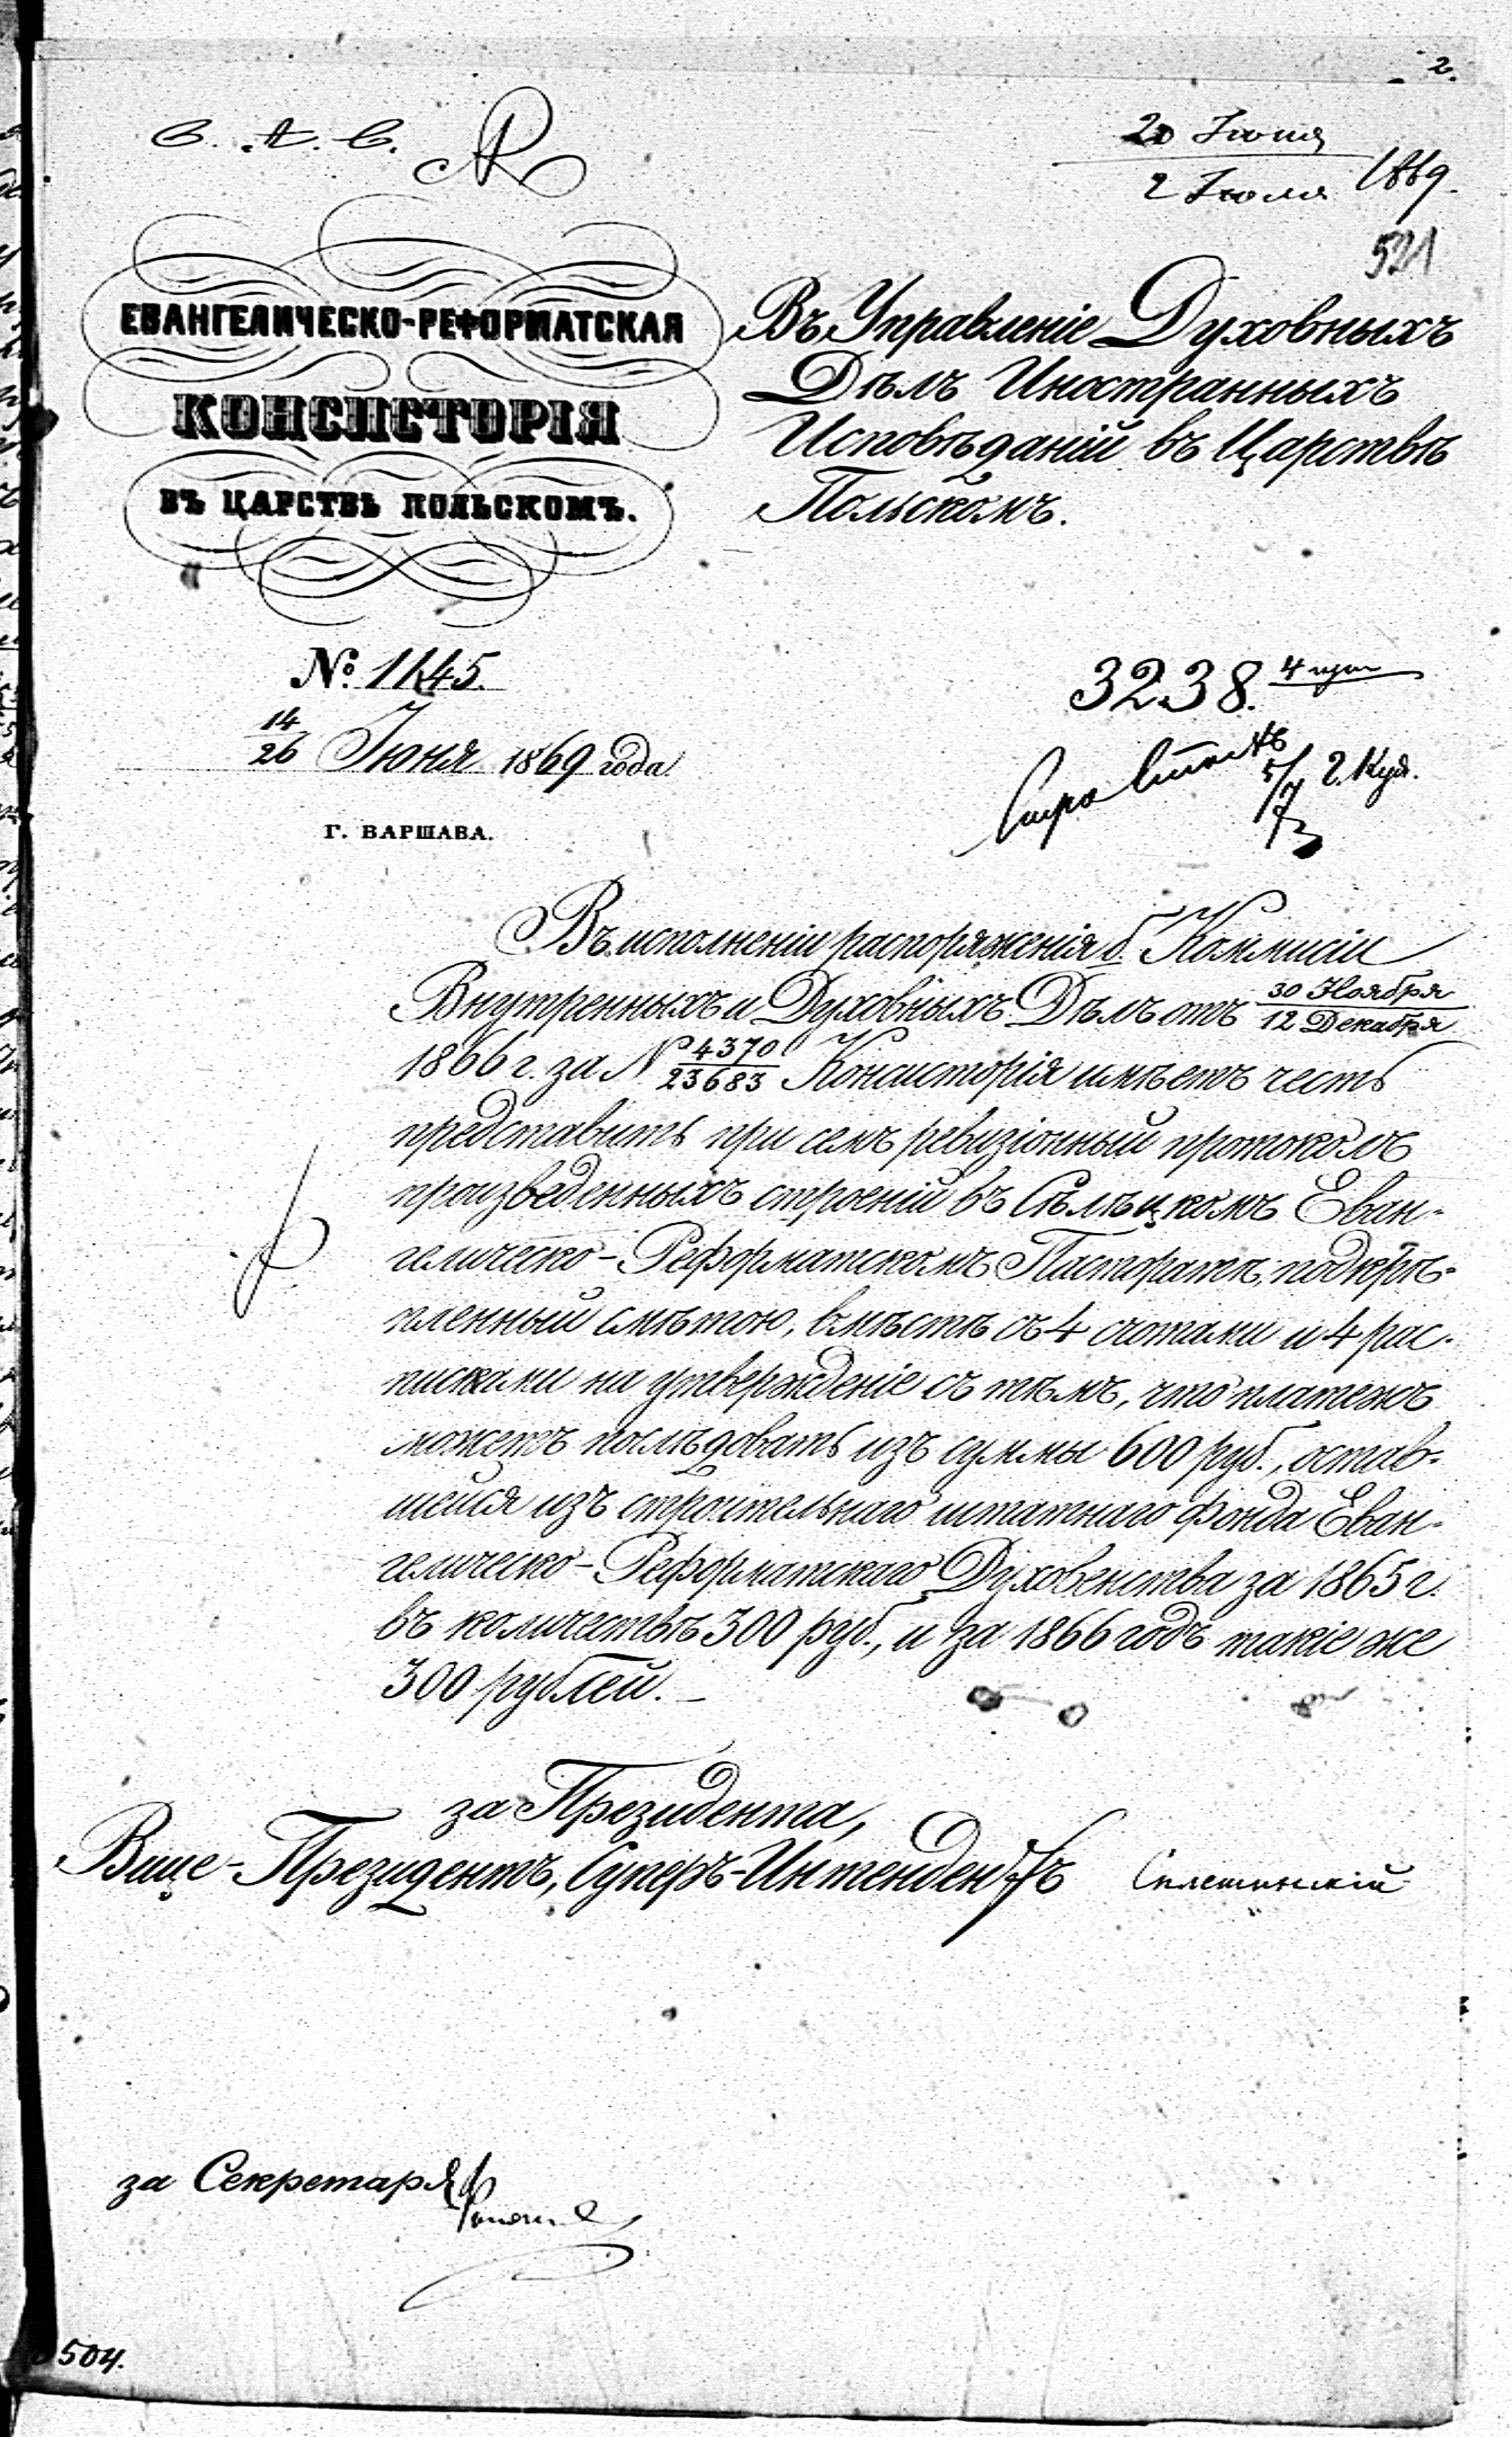 2.
20 Іюня
2 Іюля 1869.
521
ЕВАНГЕЛИЧЕСКО-РЕФОРМАТСКАЯ
КОНСИСТОРІЯ
ВЪ ЦАРСТВѢ ПОЛЬСКОМЪ.
№ 1145.
14/26 Іюня 1869 года
Г. ВАРШАВА.
Въ Управленіе Духовныхъ
Дѣлъ Иностранныхъ
Исповѣданій въ Царствѣ
Польскомъ.
3238.
Въ исполненіи распоряженія б. Коммисіи
Внутренныхъ и Духовныхъ Дѣлъ отъ 30 Ноября/12 Декабря
1866 г. за № 4370/23683 Консисторія имѣетъ честь
представить при семъ ревизіонный протоколъ
произведенныхъ строеній въ Сѣлѣцкомъ Еван-
гелическо-Реформатскомъ Пасторатѣ, подкрѣ-
пленный смѣтою, вмѣстѣ съ 4 счотами и 4 рас-
писками на утвержденіе съ тѣмъ, что платежъ
можетъ послѣдовать изъ суммы 600 руб., остав-
шейся изъ строительнаго штатнаго фонда Еван-
гелическо-Реформатскаго Духовенства за 1865 г.
въ количествѣ 300 руб., и за 1866 годъ такіе же
300 рублей.
за Президента,
Вице-Президентъ, Суперъ-Интендентъ
за Секретаря
504.